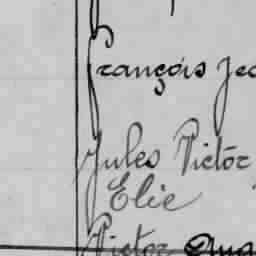 François Jea
Jules Victor
Elie
Victor Aug